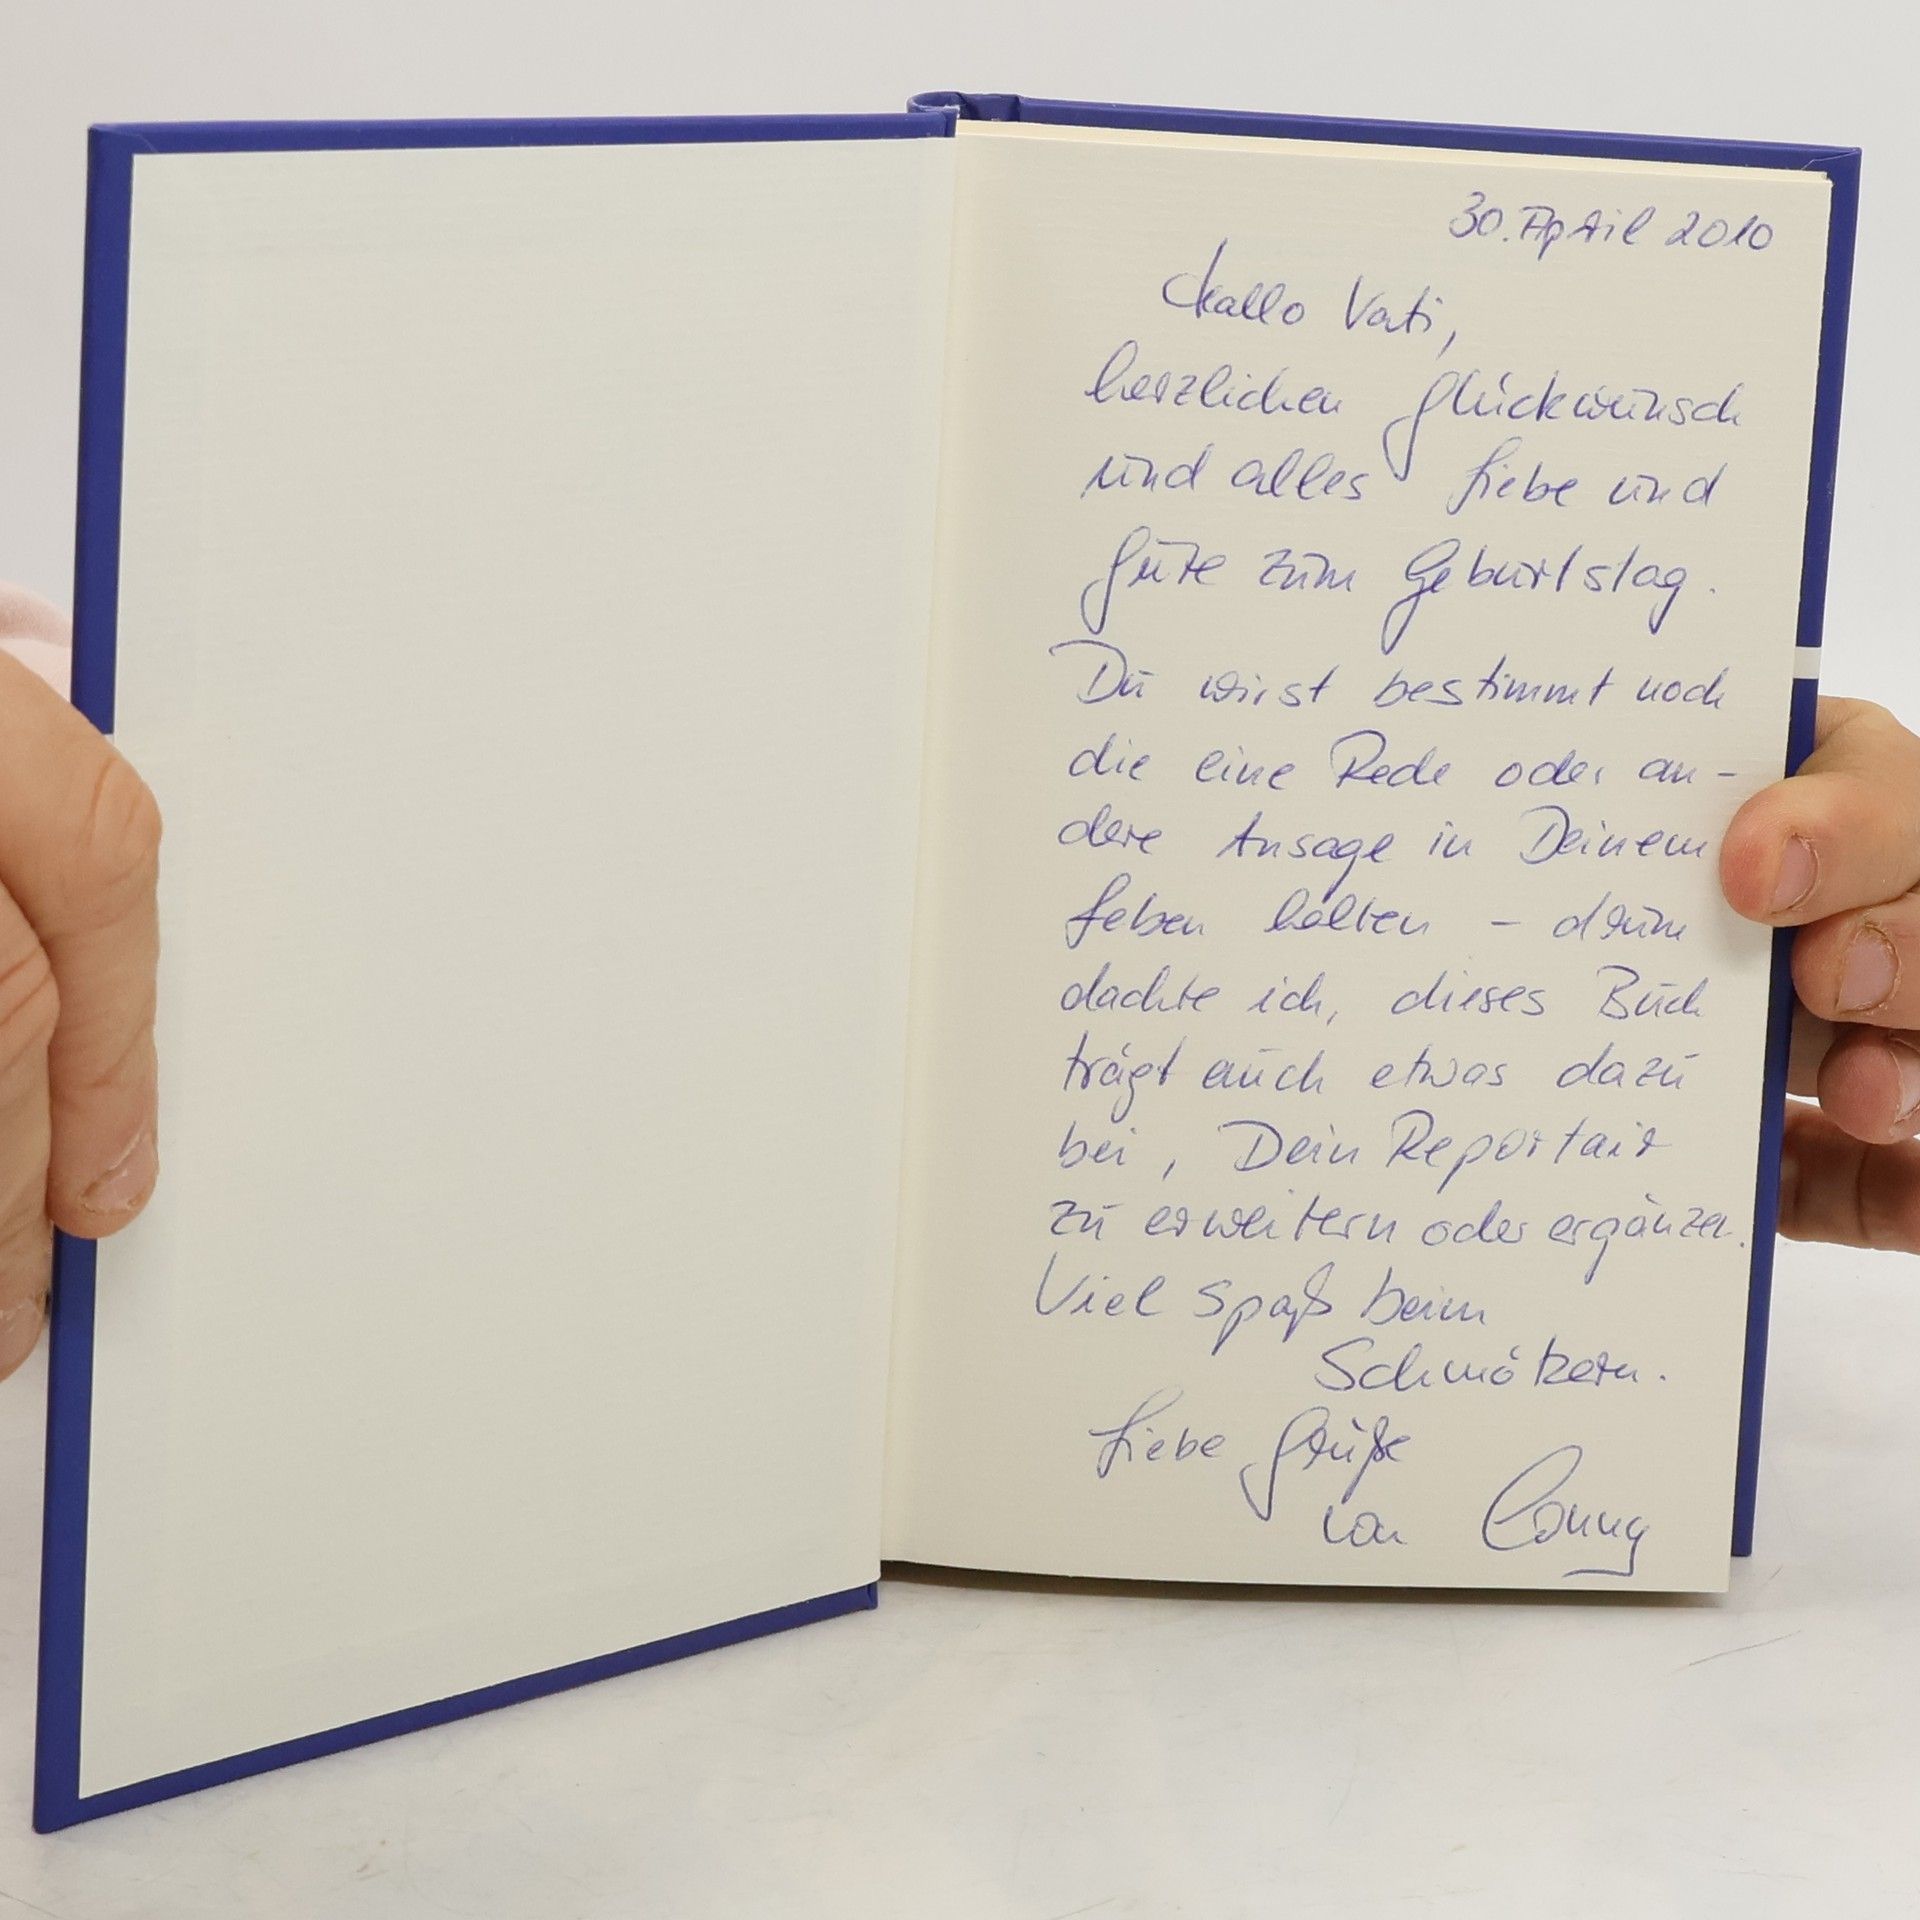 30. April 2010
Hallo Vati,
herzlichen Glückwunsch
und alles Liebe und
Gute zum Geburtstag.
Du wirst bestimmt noch
die eine Rede oder an-
dere Ansage in Deinem
Leben halten – drum
dachte ich, dieses Buch
trägt auch etwas dazu
bei, Dein Reportair
zu erweitern oder ergänzen.
Viel Spaß beim
Schmökern.
Liebe Grüße
von Conny